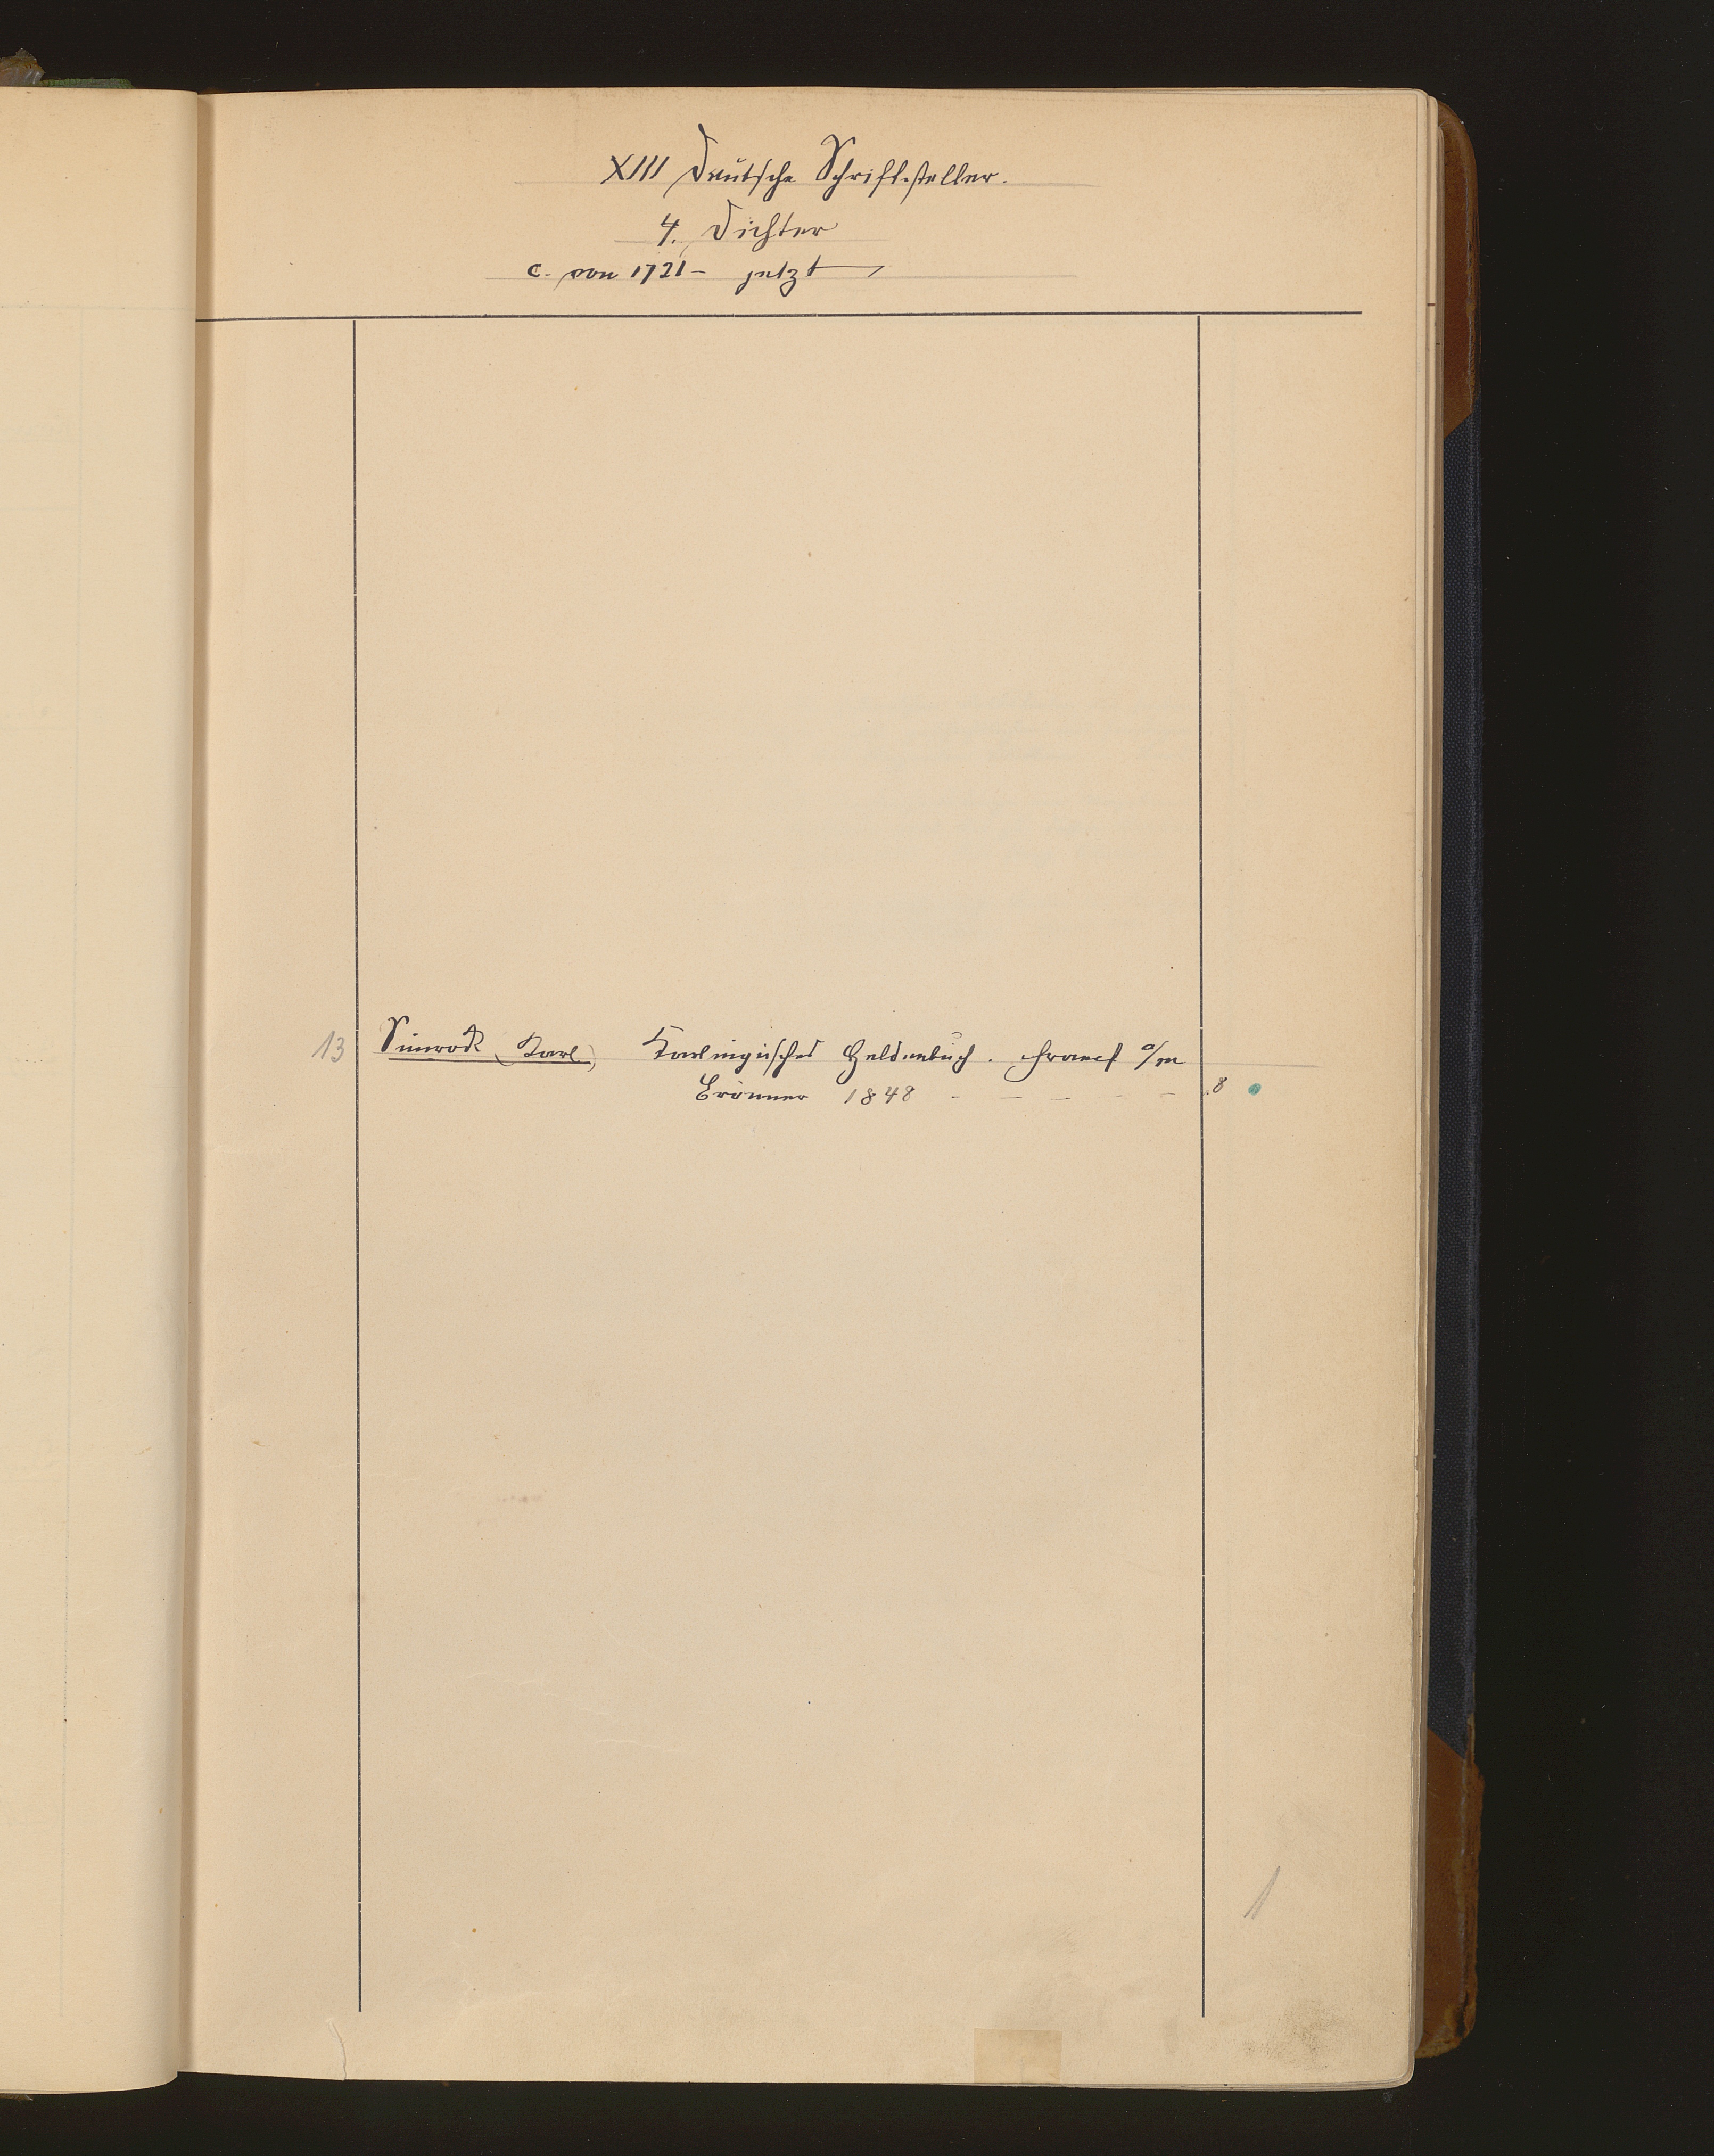 XIII Deutsche Schriftsteller.
4. Dichter
c. von 1721 – jetzt
13 Simrock (Karl) Karlingisches Heldenbuch. Francf a/m
Brönner 1848 – – – – – 8
1